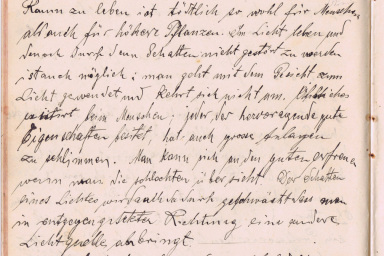 Raum zu leben ist tödtlich so wohl für Menschen
als auch für höhere Pflanzen. Im Licht leben und
dennoch durch den Schatten nicht gestört zu werden
ist auch möglich; man geht mit dem Gesicht zum
Licht gewendet und kehrt sich nicht um. Ähnliches
existirt beim Menschen; jeder der hervorragende gute
Eigenschaften besitzt, hat auch grosse Anlagen
zu schlimmen. Man kann sich an den guten erfreuen
wenn man die schlechten übersieht. Der Schatten
eines Lichtes wird auch dadurch geschwächt dass man
in entgegengesetzten Richtung eine andere
Lichtquelle anbringt